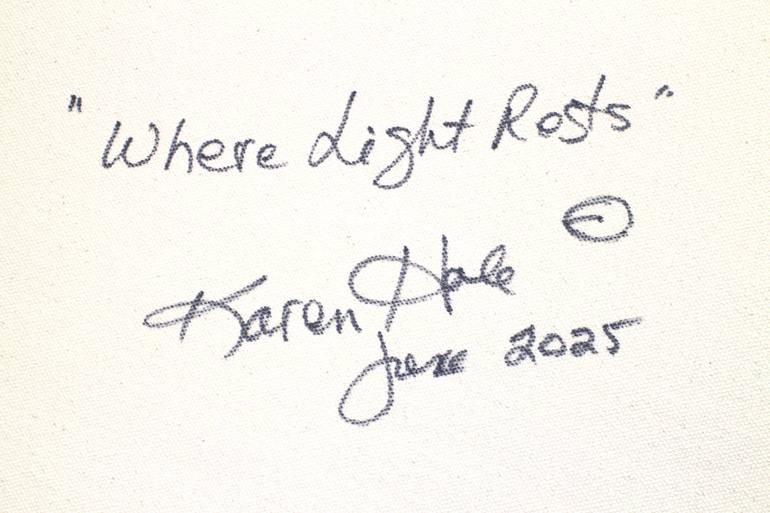 "Where Light Rests"
Karen Hale
June 2025